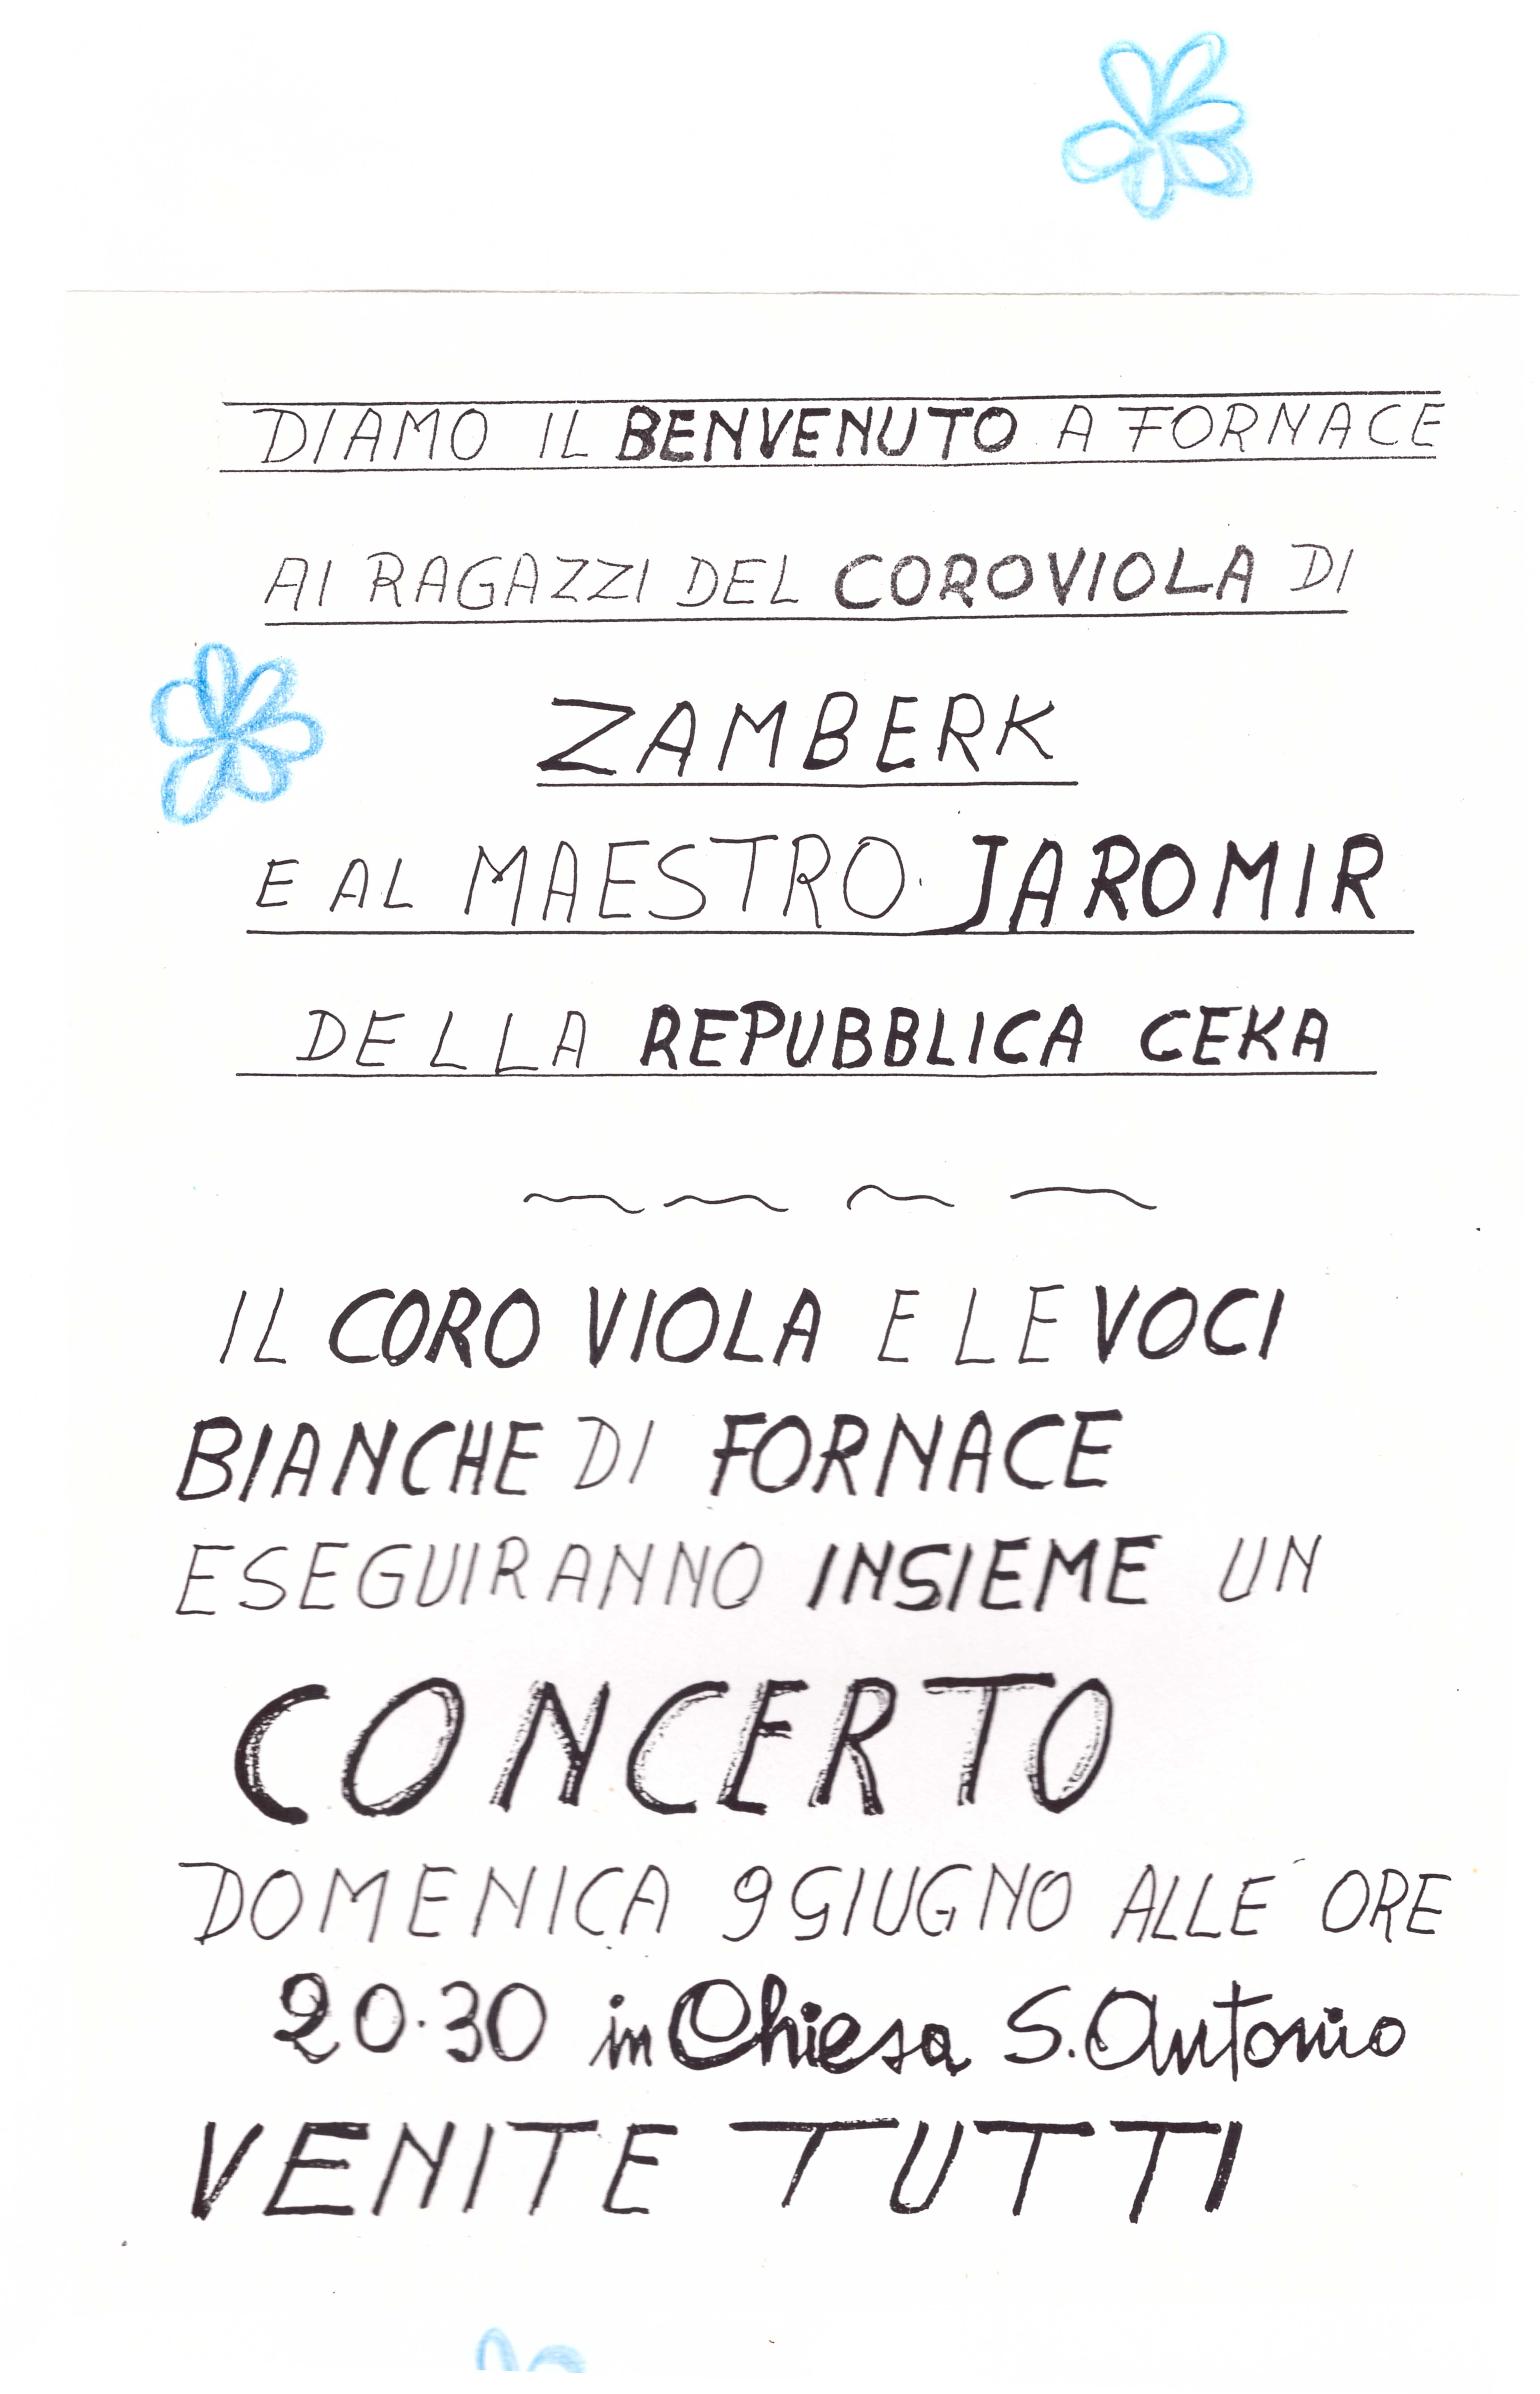 DIAMO IL BENVENUTO A FORNACE
AI RAGAZZI DEL COROVIOLA DI
ZAMBERK
E AL MAESTRO JAROMIR
DELLA REPUBBLICA CEKA
IL CORO VIOLA E LE VOCI
BIANCHE DI FORNACE
ESEGUIRANNO INSIEME UN
CONCERTO
DOMENICA 9 GIUGNO ALLE ORE
20.30 in Chiesa S. Antonio
VENITE TUTTI